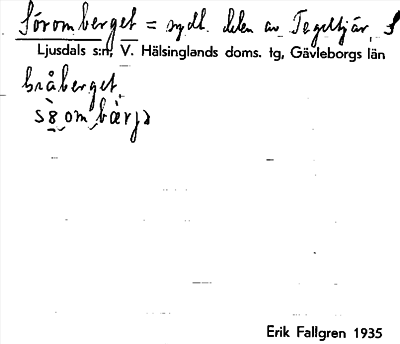 Söromberget = sydl. delen av Tegeltjär, S
Ljusdals s:n, V. Hälsinglands doms. tg, Gävleborgs län
bråberget.
Erik Fallgren 1935